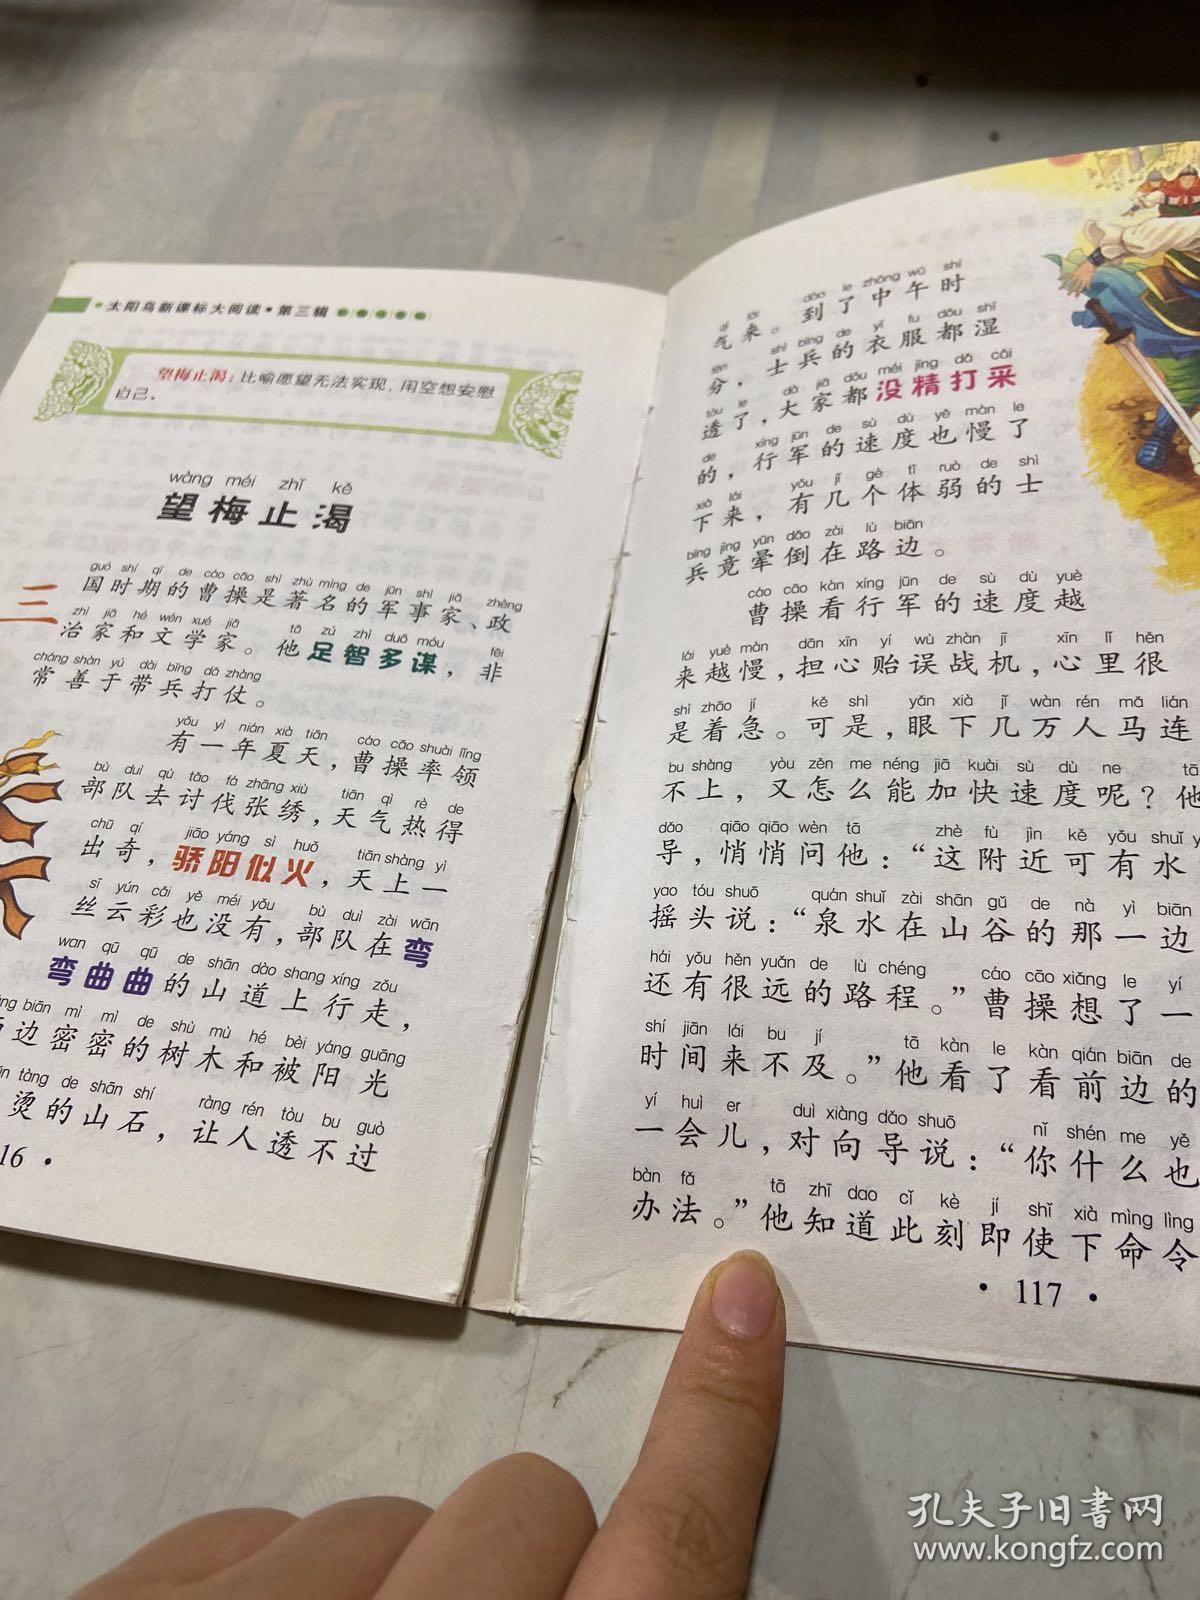 太阳鸟新课标大阅读·第三辑
望梅止渴：比喻愿望无法实现，用空想安慰
自己。
wàng méi zhǐ kě
望梅止渴
guó shí qī de cáo cāo shì zhù míng de jūn shì jiā zhèng
三国时期的曹操是著名的军事家、政
zhì jiā hé wén xué jiā tā zú zhì duō móu fēi
治家和文学家。他足智多谋，非
cháng shàn yú dài bīng dǎ zhàng
常善于带兵打仗。
yǒu yì nián xià tiān cáo cāo shuài lǐng
有一年夏天，曹操率领
bù duì qù tǎo fá zhāng xiù tiān qì rè de
部队去讨伐张绣，天气热得
chū qí jiāo yáng sì huǒ tiān shàng yì
出奇，骄阳似火，天上一
sī yún cǎi yě méi yǒu bù duì zài wān
丝云彩也没有，部队在弯
wan qū qū de shān dào shang xíng zǒu
弯曲曲的山道上行走，
biān mì mì de shù mù hé bèi yáng guāng
边密密的树木和被阳光
tàng de shān shí ràng rén tòu bu guò
烫的山石，让人透不过
16 ·
qì lái dào le zhōng wǔ shí
气来。到了中午时
fēn shì bīng de yī fu dōu shī
分，士兵的衣服都湿
tòu le dà jiā dōu méi jīng dǎ cǎi
透了，大家都没精打采
de xíng jūn de sù dù yě màn le
的，行军的速度也慢了
xià lái yǒu jǐ gè tǐ ruò de shì
下来，有几个体弱的士
bīng jìng yūn dǎo zài lù biān
兵竟晕倒在路边。
cáo cāo kàn xíng jūn de sù dù yuè
曹操看行军的速度越
lái yuè màn dān xīn yí wù zhàn jī xīn lǐ hěn
来越慢，担心贻误战机，心里很
shì zháo jí kě shì yǎn xià jǐ wàn rén mǎ lián
是着急。可是，眼下几万人马连
bu shàng yòu zěn me néng jiā kuài sù dù ne tā
不上，又怎么能加快速度呢？他
dǎo qiāo qiāo wèn tā zhè fù jìn kě yǒu shuǐ
导，悄悄问他：“这附近可有水
yao tóu shuō quán shuǐ zài shān gǔ de nà yì biān
摇头说：“泉水在山谷的那一边
hái yǒu hěn yuǎn de lù chéng cáo cāo xiǎng le yí
还有很远的路程。”曹操想了一
shí jiān lái bu jí tā kàn le kàn qián biān de
时间来不及。”他看了看前边的
yí huì er duì xiàng dǎo shuō nǐ shén me yě
一会儿，对向导说：“你什么也
bàn fǎ tā zhī dao cǐ kè jí shǐ xià mìng lìng
办法。”他知道此刻即使下命令
· 117 ·
孔夫子旧书网
www.kongfz.com